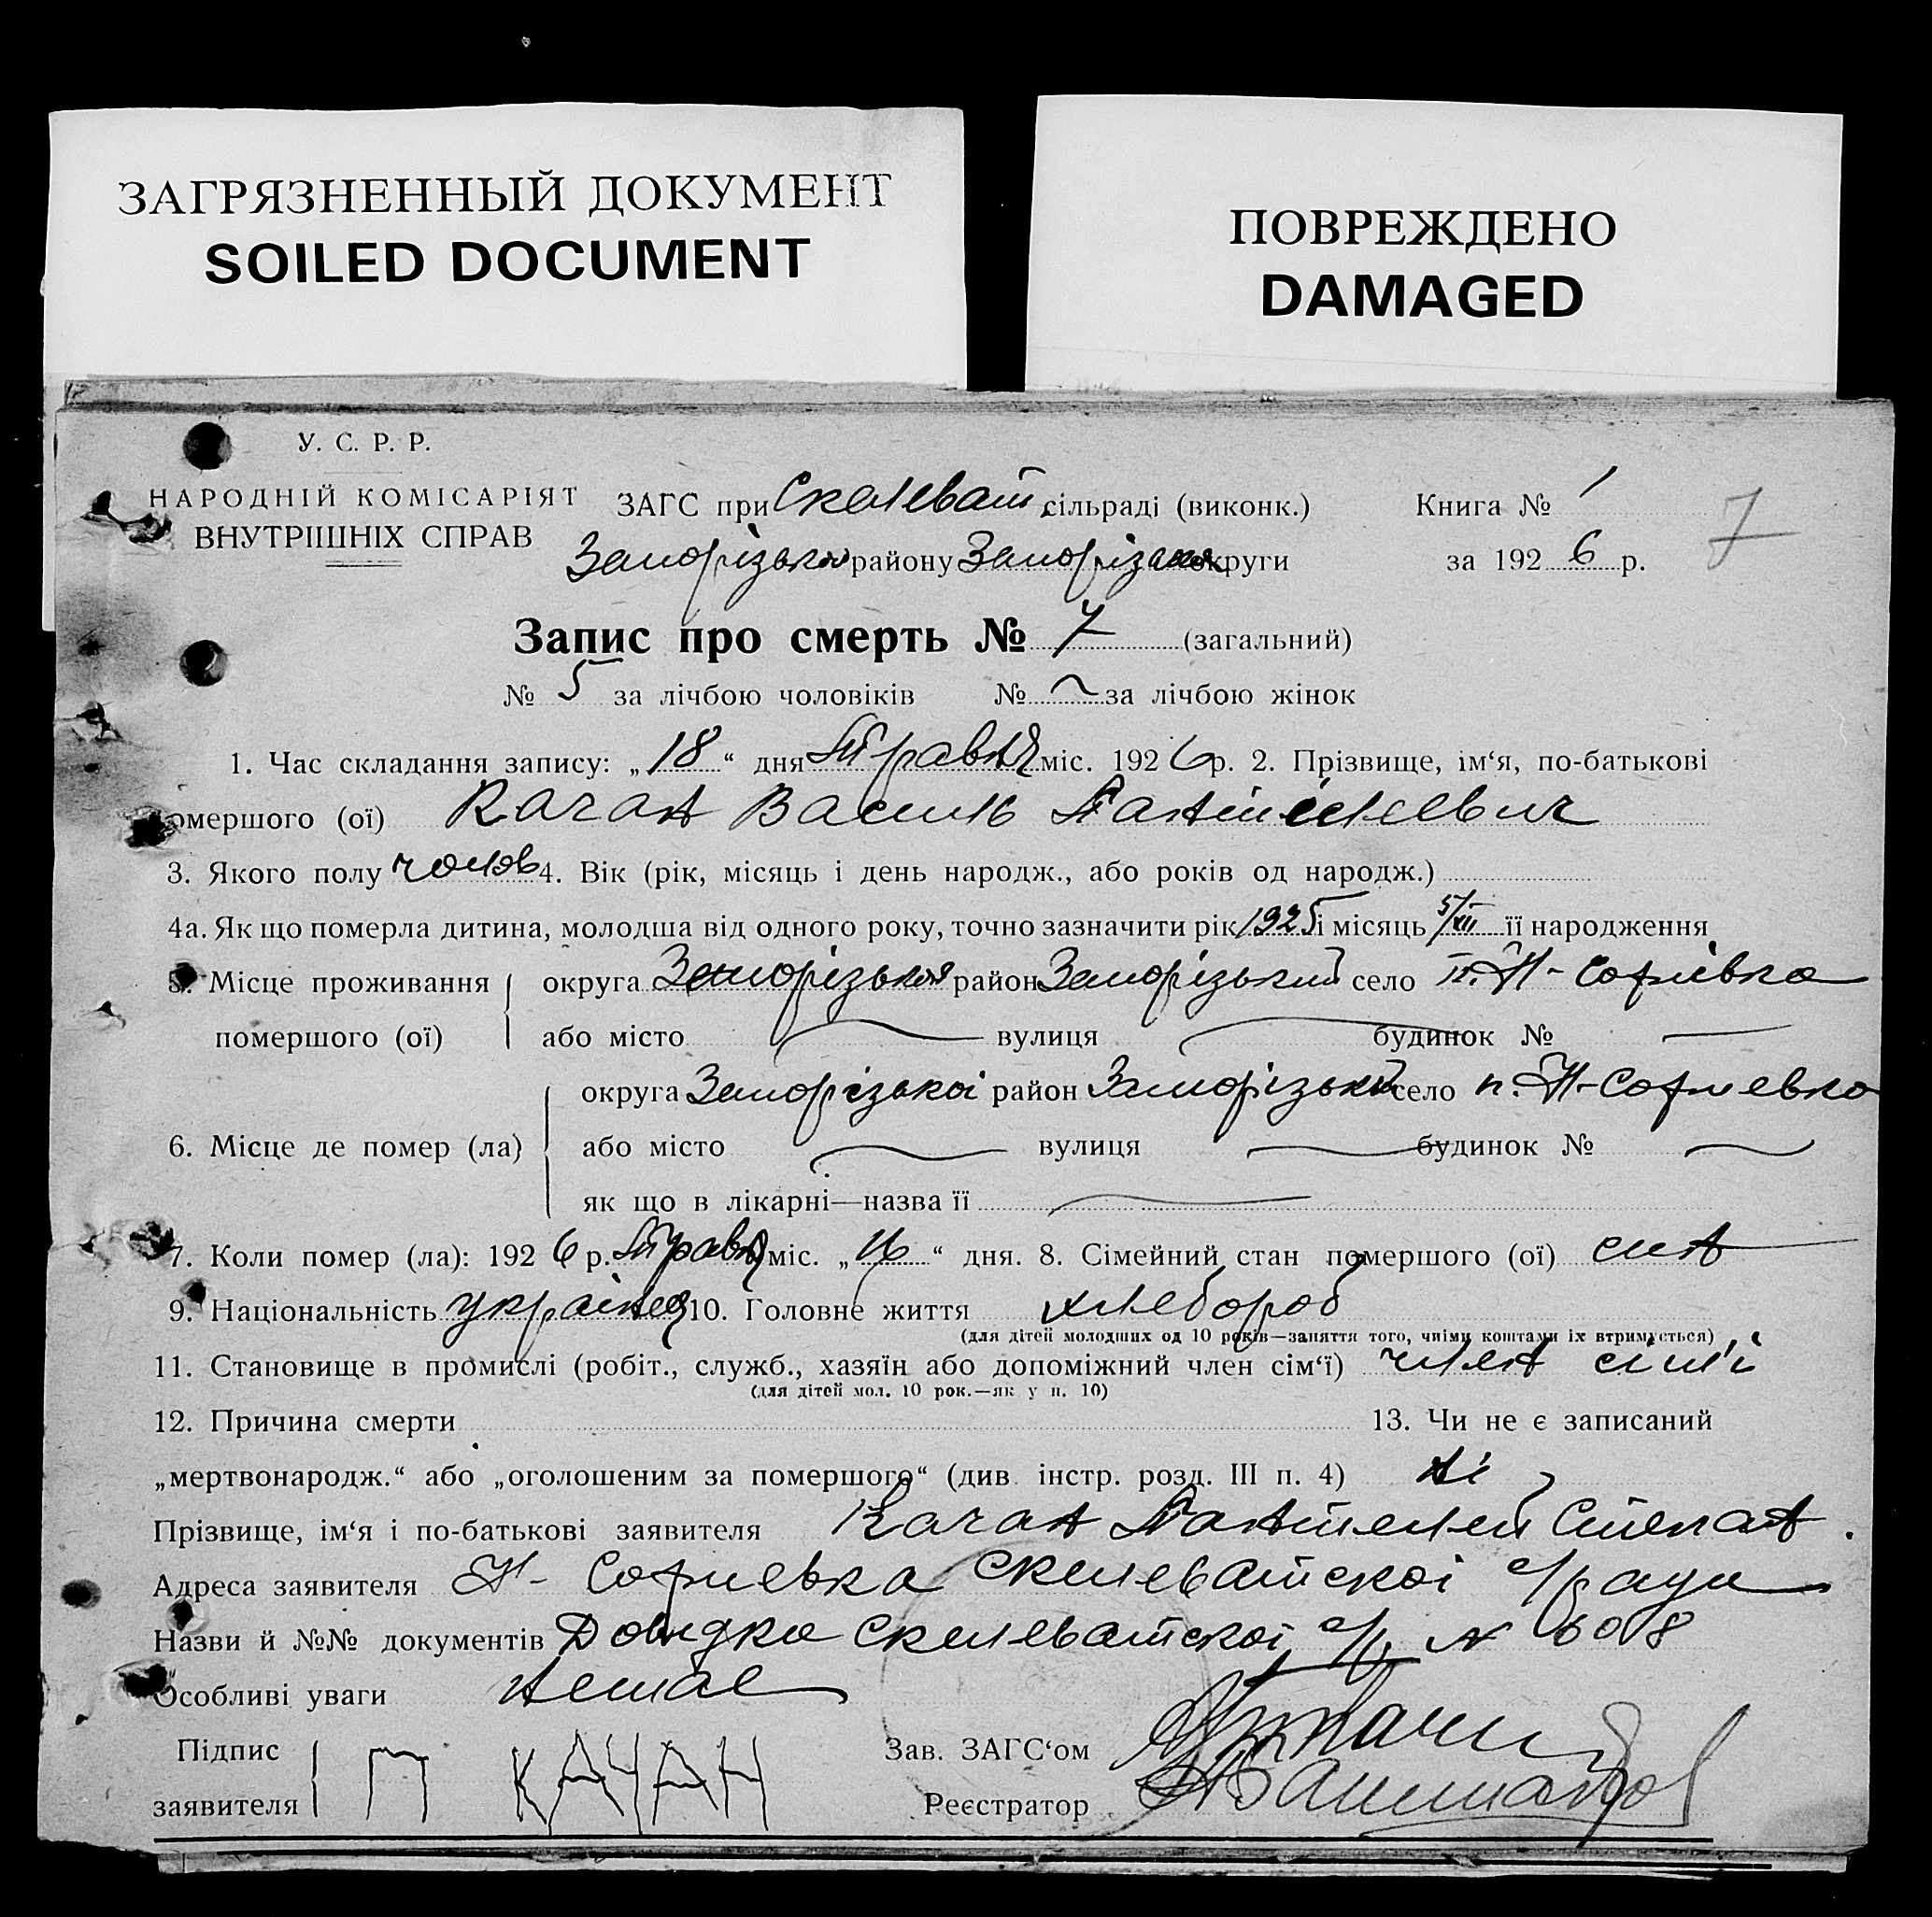 ЗАГРЯЗНЕННЫЙ ДОКУМЕНТ
SOILED DOCUMENT
ПОВРЕЖДЕНО
DAMAGED
У. С. Р. Р.
НАРОДНІЙ КОМІСАРІЯТ
ВНУТРІШНІХ СПРАВ
ЗАГС при Скелеват. сільраді (виконк.) Книга № 1
Запорізьког району Запорізької округи за 1926 р.
7
Запис про смерть № 7 (загальний)
№ 5 за лічбою чоловіків № за лічбою жінок
1. Час складання запису: „18“ дня Травня міс. 1926 р. 2. Прізвище, ім‘я, по-батькові
помершого (ої) Качан Василь Пантілеевич
3. Якого полу чолов 4. Вік (рік, місяць і день народж., або років од народж.)
4а. Як що померла дитина, молодша від одного року, точно зазначити рік 1925 і місяць 5/XII її народження
5. Місце проживання округа Запорізькоя район Запорізький село п. Н-Софиівка
помершого (ої) або місто вулиця будинок №
округа Запорізької район Запорізький село п. Н-Софиевка
6. Місце де помер (ла) або місто вулиця будинок №
як що в лікарні—назва її
7. Коли помер (ла): 1926 р. Травня міс. „16“ дня. 8. Сімейний стан помершого (ої) син
9. Національність українец 10. Головне життя хлебороб
(для дітей молодших од 10 років—заняття того, чиїми коштами їх втримується)
11. Становище в промислі (робіт., служб., хазяїн або допоміжний член сім‘ї) член сімї
(для дітей мол. 10 рок.—як у п. 10)
12. Причина смерти 13. Чи не є записаний
„мертвонародж.“ або „оголошеним за помершого“ (див. інстр. розд. III п. 4) ні
Прізвище, ім‘я і по-батькові заявителя Качан Пантелей Степан.
Адреса заявителя Н-Софиевка Скелеватской с/ради
Назви й №№ документів Довидка Скелеватской с/р N 608
Особливі уваги немає
Підпис заявителя П КАЧАН
Зав. ЗАГС‘ом
Реєстратор